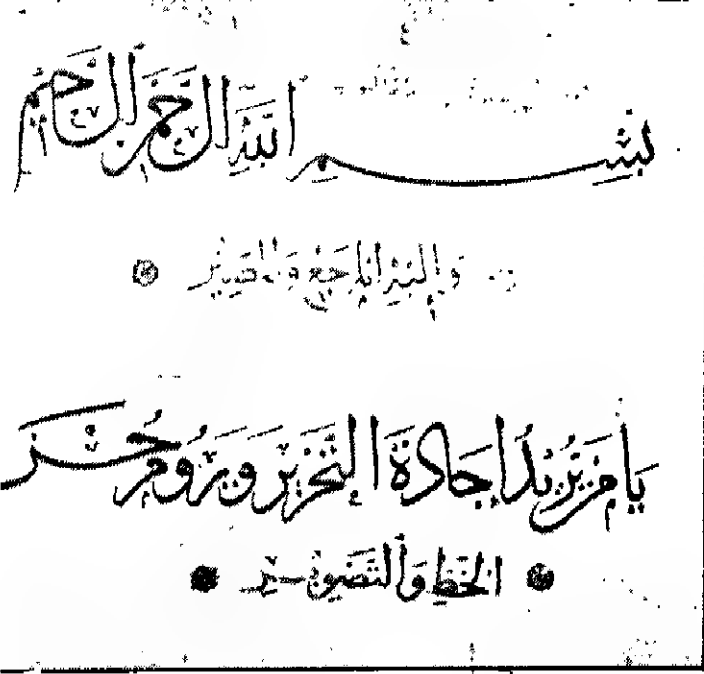 بِسْمِ اللَّهِ الرَّحْمَنِ الرَّحِيمِ
وَإِلَيْهِ الْمَرْجِعُ وَالْمَصِيرُ
يَا مَنْ يُرِيدُ إِجَادَةَ التَّحْرِيرِ وَيَرُومُ حُسْنَ
الْخَطِّ وَالتَّصْوِيرِ